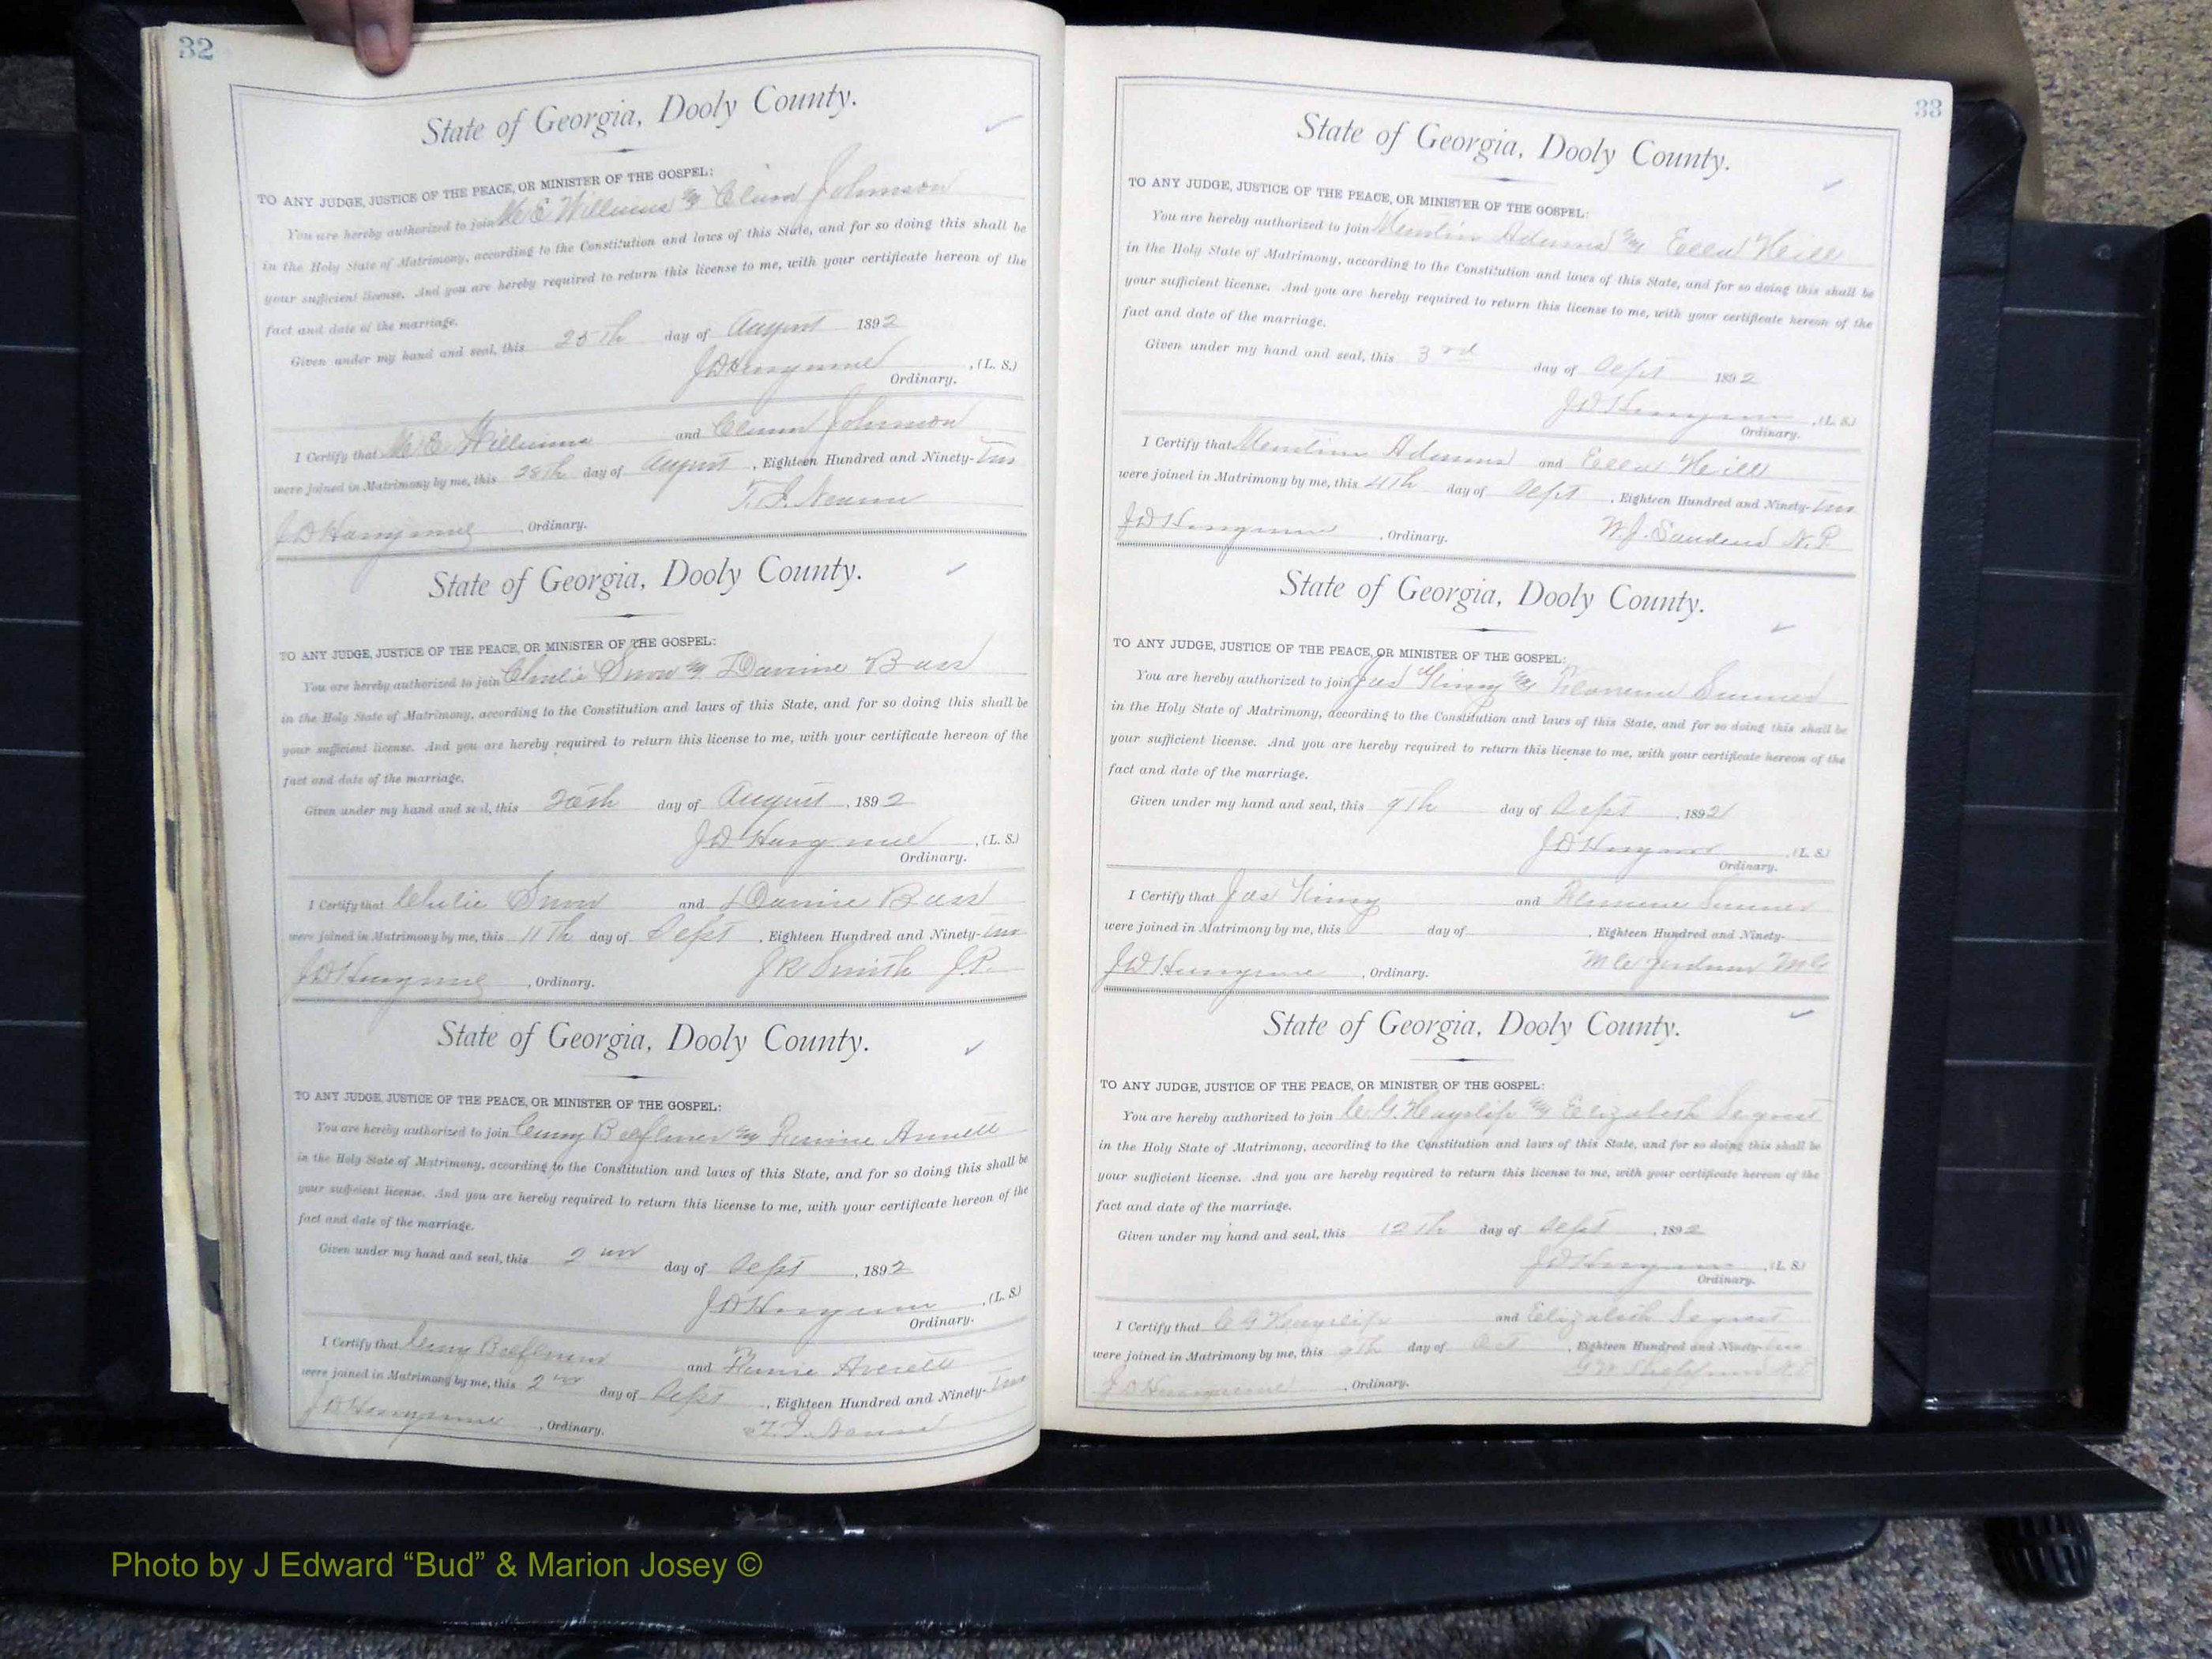 32
State of Georgia, Dooly County.
TO ANY JUDGE, JUSTICE OF THE PEACE, OR MINISTER OF THE GOSPEL:
You are hereby authorized to join E Williams Johnson
in the Holy State of Matrimony, according to the Constitution and laws of this State, and for so doing this shall be
your sufficient license. And you are hereby required to return this license to me, with your certificate hereon of the
fact and date of the marriage.
Given under my hand and seal, this 25th day of August 1892
, (L. S.)
Ordinary.
I Certify that E Williams and Johnson
were joined in Matrimony by me, this 28th day of August , Eighteen Hundred and Ninety-two
, Ordinary.
State of Georgia, Dooly County.
TO ANY JUDGE, JUSTICE OF THE PEACE, OR MINISTER OF THE GOSPEL:
You are hereby authorized to join Snow Bass
in the Holy State of Matrimony, according to the Constitution and laws of this State, and for so doing this shall be
your sufficient license. And you are hereby required to return this license to me, with your certificate hereon of the
fact and date of the marriage.
Given under my hand and seal, this day of August , 1892
, (L. S.)
Ordinary.
I Certify that Snow and Bass
were joined in Matrimony by me, this 11th day of Sept , Eighteen Hundred and Ninety-two
, Ordinary. J R Smith J.P.
State of Georgia, Dooly County.
TO ANY JUDGE, JUSTICE OF THE PEACE, OR MINISTER OF THE GOSPEL:
You are hereby authorized to join
in the Holy State of Matrimony, according to the Constitution and laws of this State, and for so doing this shall be
your sufficient license. And you are hereby required to return this license to me, with your certificate hereon of the
fact and date of the marriage.
Given under my hand and seal, this 2 day of Sept , 1892
, (L. S.)
Ordinary.
I Certify that and Averett
were joined in Matrimony by me, this 2 day of Sept , Eighteen Hundred and Ninety-two
, Ordinary.
33
State of Georgia, Dooly County.
TO ANY JUDGE, JUSTICE OF THE PEACE, OR MINISTER OF THE GOSPEL:
You are hereby authorized to join Adams Ella
in the Holy State of Matrimony, according to the Constitution and laws of this State, and for so doing this shall be
your sufficient license. And you are hereby required to return this license to me, with your certificate hereon of the
fact and date of the marriage.
Given under my hand and seal, this 3rd day of Sept 1892
, (L. S.)
Ordinary.
I Certify that Adams and Ella
were joined in Matrimony by me, this 4th day of Sept , Eighteen Hundred and Ninety-two
, Ordinary. W. J. Sanders N. P.
State of Georgia, Dooly County.
TO ANY JUDGE, JUSTICE OF THE PEACE, OR MINISTER OF THE GOSPEL:
You are hereby authorized to join Jas
in the Holy State of Matrimony, according to the Constitution and laws of this State, and for so doing this shall be
your sufficient license. And you are hereby required to return this license to me, with your certificate hereon of the
fact and date of the marriage.
Given under my hand and seal, this day of Sept , 1892
, (L. S.)
Ordinary.
I Certify that Jas and
were joined in Matrimony by me, this day of , Eighteen Hundred and Ninety-
, Ordinary.
State of Georgia, Dooly County.
TO ANY JUDGE, JUSTICE OF THE PEACE, OR MINISTER OF THE GOSPEL:
You are hereby authorized to join Elizabeth
in the Holy State of Matrimony, according to the Constitution and laws of this State, and for so doing this shall be
your sufficient license. And you are hereby required to return this license to me, with your certificate hereon of the
fact and date of the marriage.
Given under my hand and seal, this 12th day of Sept , 1892
, (L. S.)
Ordinary.
I Certify that and Elizabeth
were joined in Matrimony by me, this 9th day of Oct , Eighteen Hundred and Ninety-two
, Ordinary.
Photo by J Edward “Bud” & Marion Josey ©